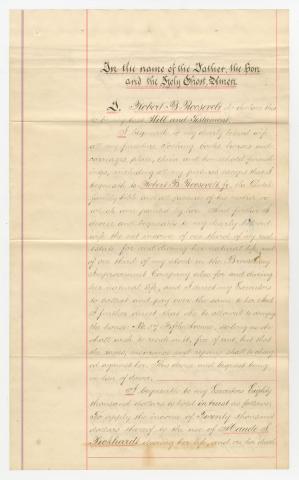 In the name of the Father, the Son
and the Holy Ghost, Amen.
I, Robert B. Roosevelt do declare this
to be my last Will and Testament.
I bequeath to my dearly beloved wife
all my furniture clothing books horses and
carriages, plate, china and household furnish-
ings, including all my pictures except that I
bequeath to Robert B. Roosevelt, Jr. the Dutch
family bible and a picture of his mother
which was painted by her. And further I
devise and bequeath to my dearly beloved
wife the net income of one third of my real
estate for and during her natural life, and
of one third of my stock in the Broadway
Improvement Company also for and during
her natural life, and I direct my Executors
to collect and pay over the same to her. And
I further direct that she be allowed to occupy
the house No. 57 Fifth Avenue, so long as she
shall wish to reside in it, free of rent, but that
the taxes, insurance and repairs shall be charg-
ed against her. This devise and bequest being
in lieu of dower.
I bequeath to my Executors Eighty
thousand dollars to hold in trust as follows
To apply the income of Twenty thousand
dollars thereof to the use of Maude S.
Richards during her life, and on her death